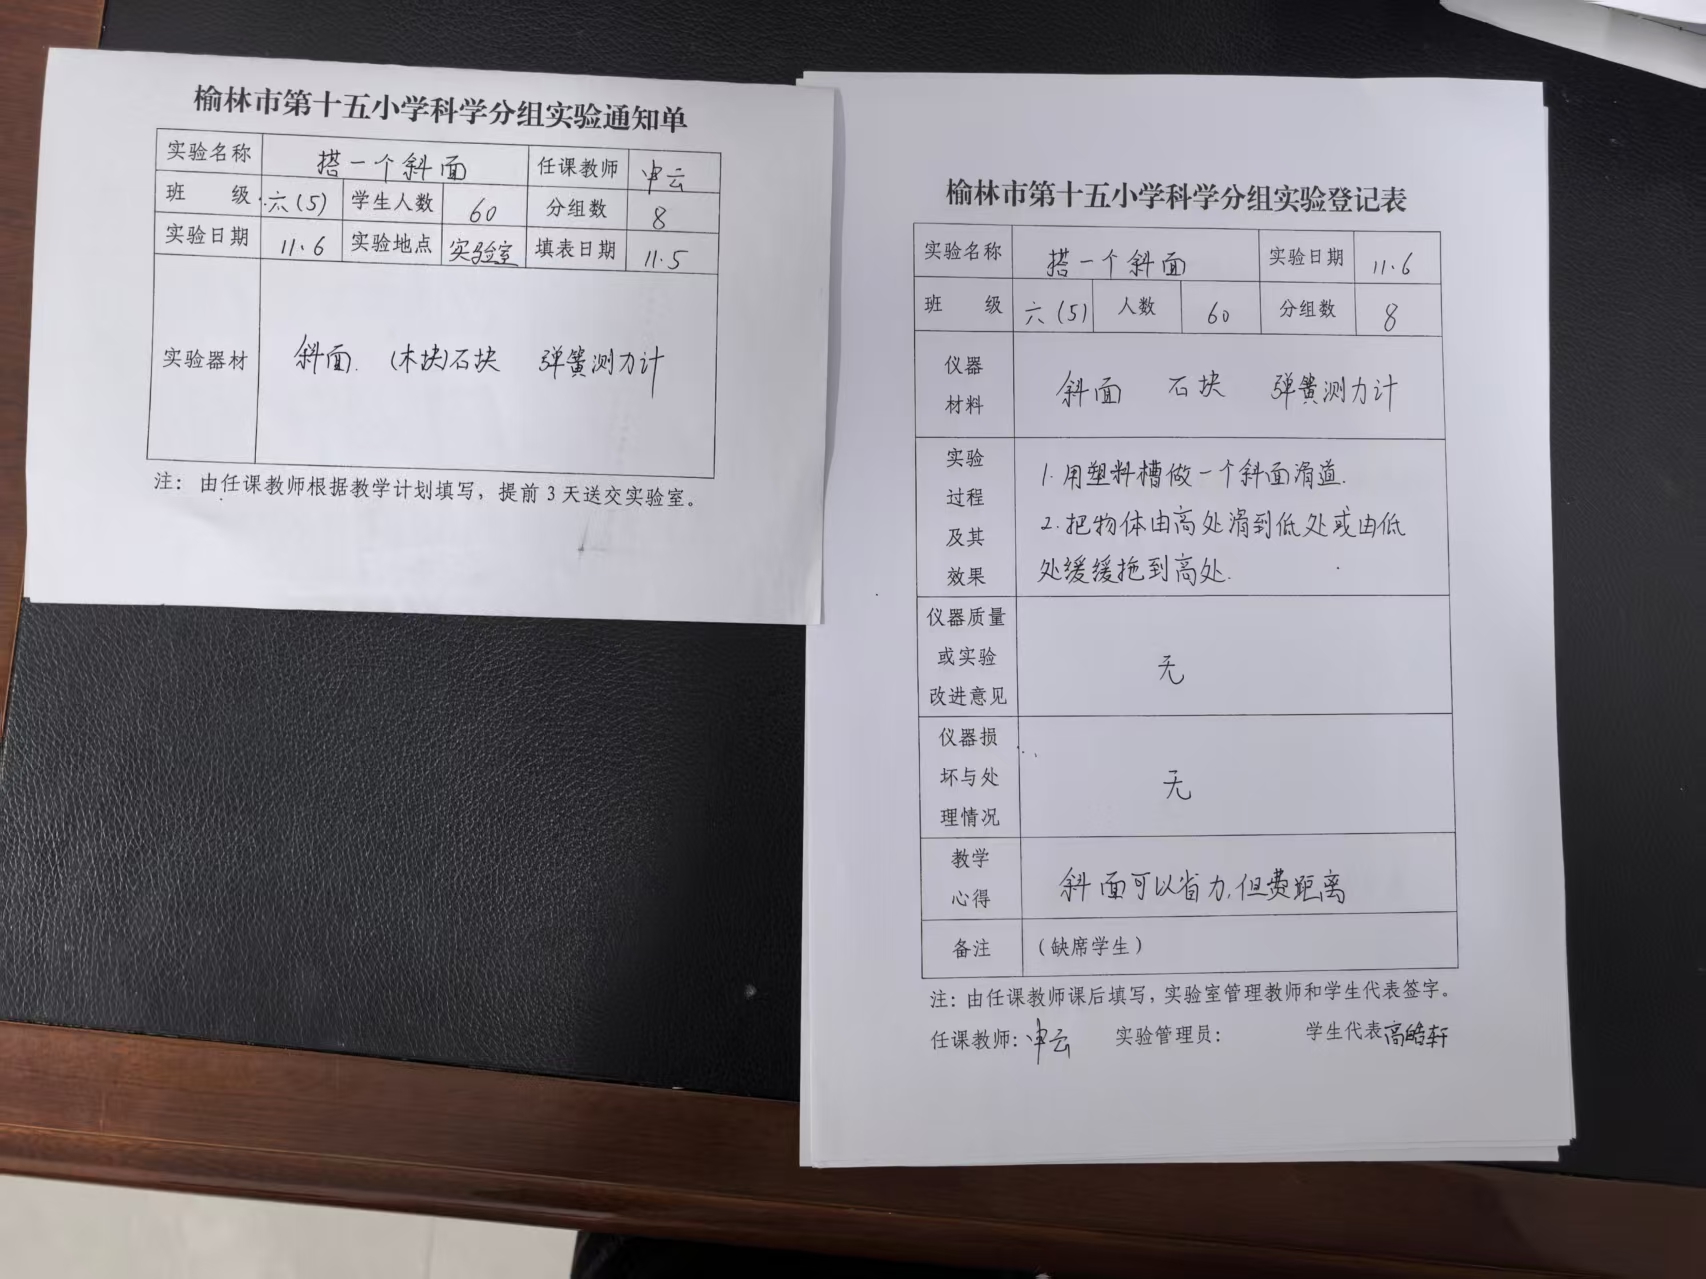 榆林市第十五小学科学分组实验通知单
实验名称 搭一个斜面 任课教师 申云
班 级 六(5) 学生人数 60 分组数 8
实验日期 11.6 实验地点 实验室 填表日期 11.5
实验器材 斜面. (木块)石块 弹簧测力计
注: 由任课教师根据教学计划填写，提前3天送交实验室。
榆林市第十五小学科学分组实验登记表
实验名称 搭一个斜面 实验日期 11.6
班 级 六(5) 人数 60 分组数 8
仪器
材料
斜面 石块 弹簧测力计
实验
过程
及其
效果
1.用塑料槽做一个斜面滑道.
2.把物体由高处滑到低处或由低
处缓缓拖到高处.
仪器质量
或实验
改进意见
无
仪器损
坏与处
理情况
无
教学
心得
斜面可以省力,但费距离
备注 (缺席学生)
注: 由任课教师课后填写，实验室管理教师和学生代表签字。
任课教师: 申云 实验管理员: 学生代表高皓轩